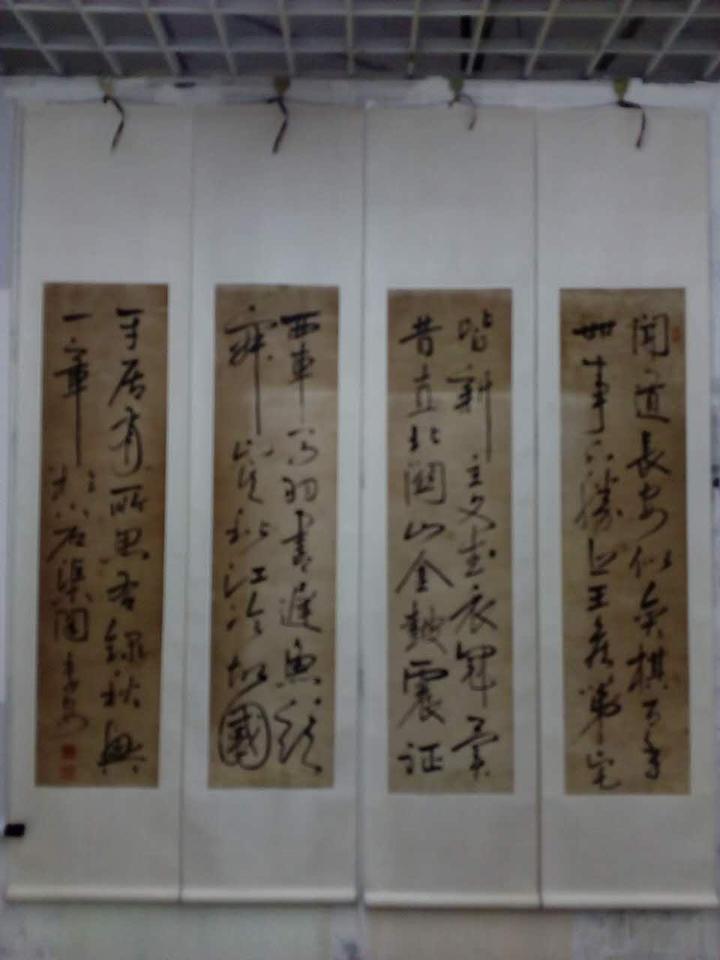 聞道長安似奕棋百年
世事不勝悲王侯第宅
皆新主文武衣冠異
昔直北關山金鼓震征
西車馬羽書遲魚龍
寂寞秋江冷故國
平居有所思右錄秋興
一章 石渠閣